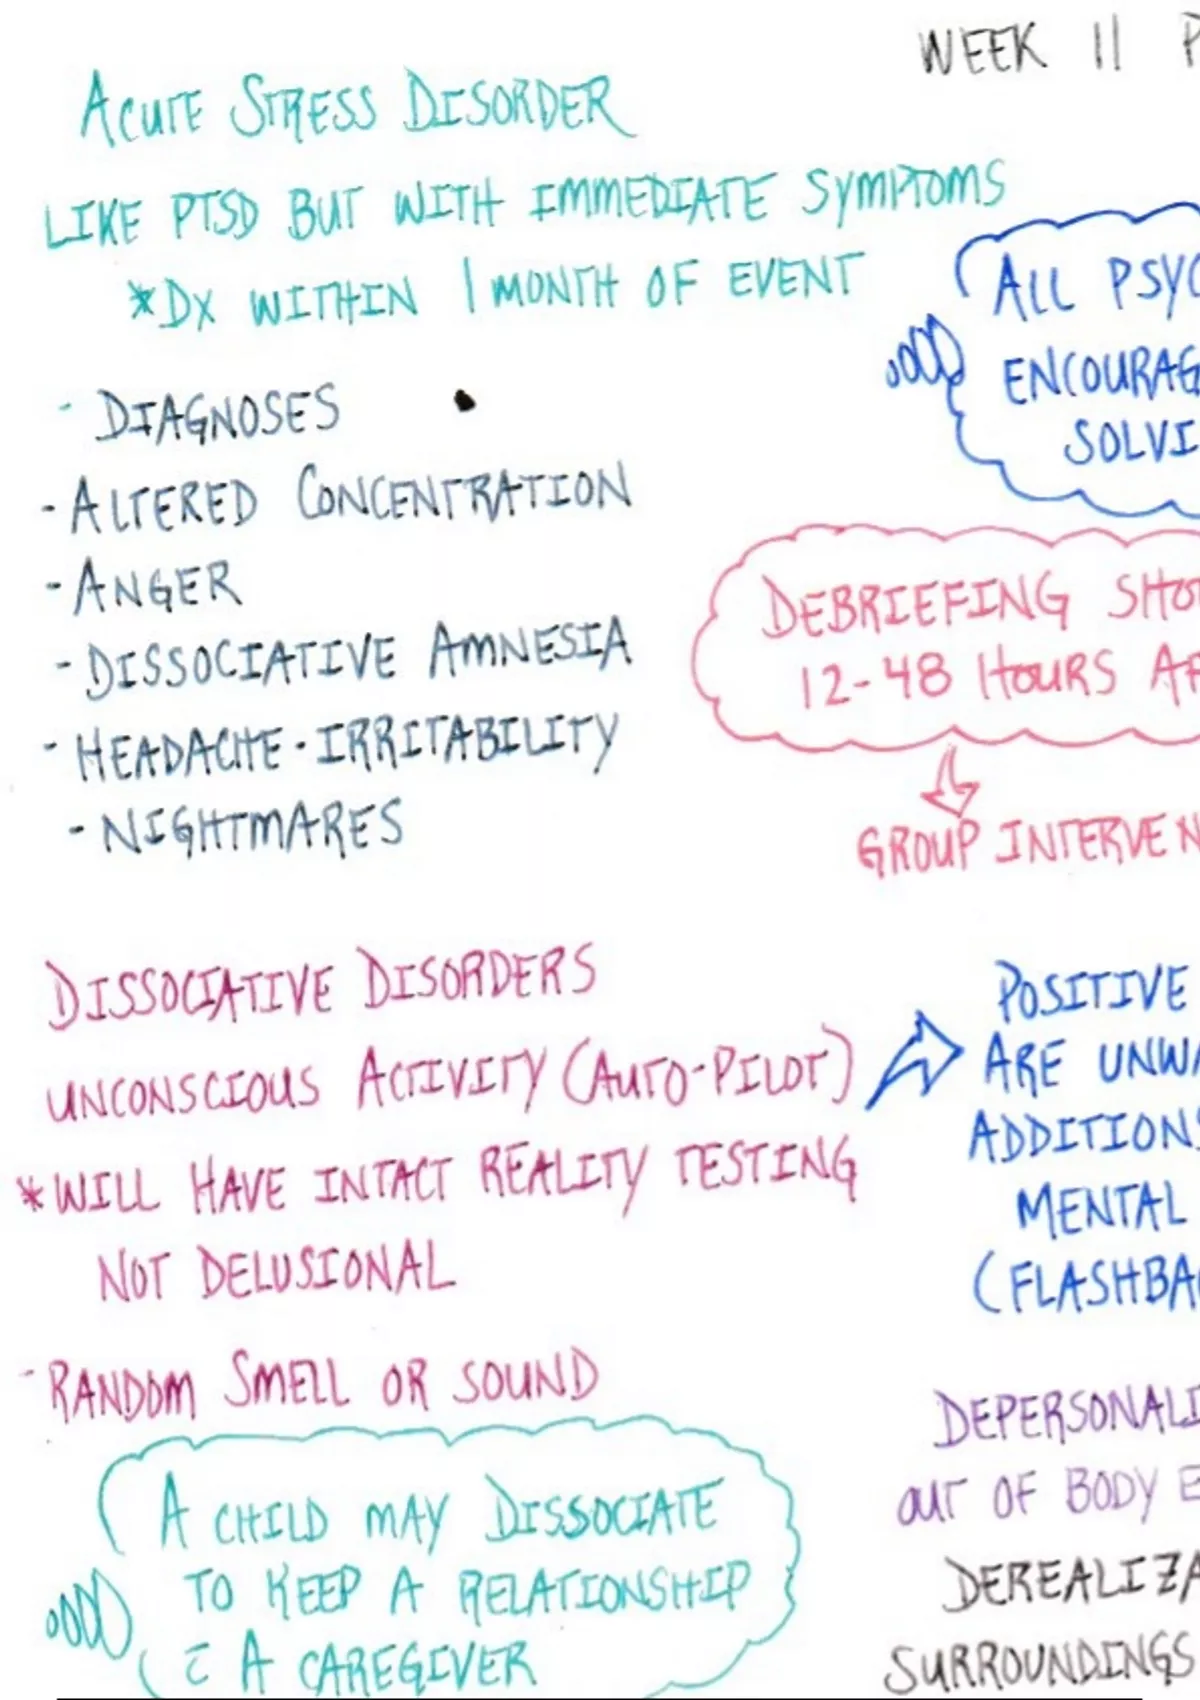 WEEK 11 P
ACUTE STRESS DISORDER
LIKE PTSD BUT WITH IMMEDIATE SYMPTOMS
*DX WITHIN 1 MONTH OF EVENT
- DIAGNOSES
- ALTERED CONCENTRATION
- ANGER
- DISSOCIATIVE AMNESIA
- HEADACHE · IRRITABILITY
- NIGHTMARES
ALL PSYC
ENCOURAG
SOLVI
DEBRIEFING SHO
12-48 HOURS AF
GROUP INTERVEN
DISSOCIATIVE DISORDERS
UNCONSCIOUS ACTIVITY (AUTO-PILOT)
*WILL HAVE INTACT REALITY TESTING
NOT DELUSIONAL
- RANDOM SMELL OR SOUND
POSITIVE
ARE UNWA
ADDITIONS
MENTAL
(FLASHBA
A CHILD MAY DISSOCIATE
TO KEEP A RELATIONSHIP
c̄ A CAREGIVER
DEPERSONALI
OUT OF BODY E
DEREALIZA
SURROUNDINGS